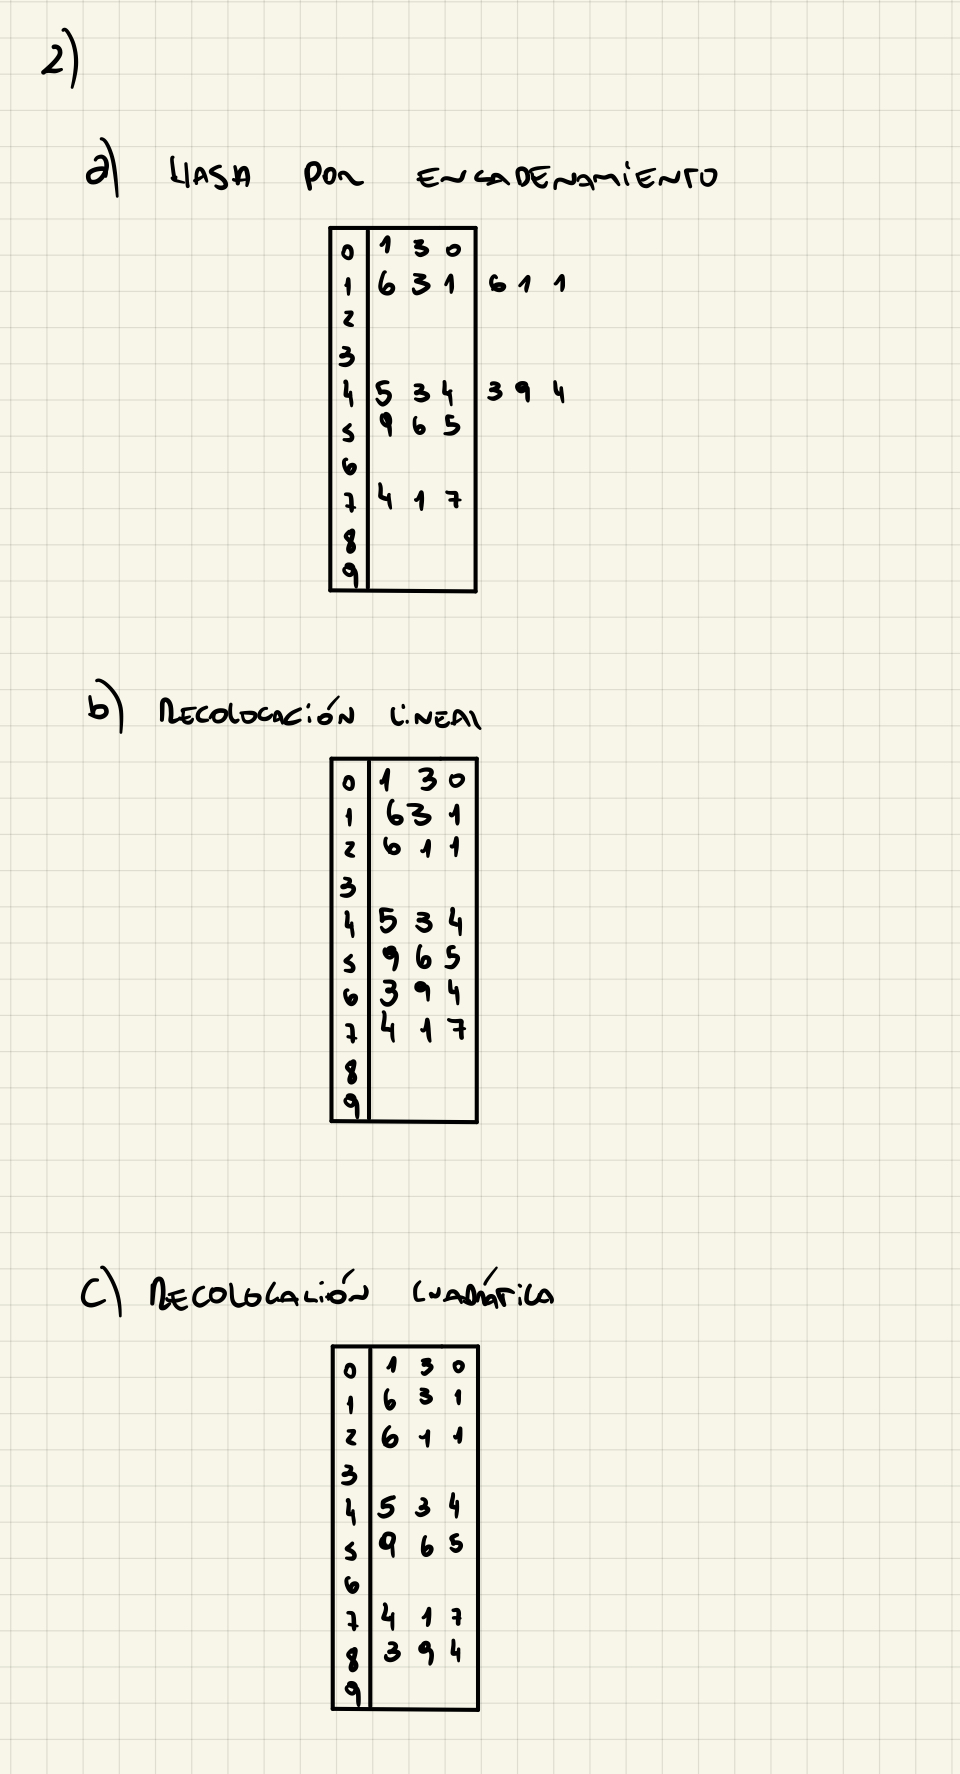 2)
a) HASH POR ENCADENAMIENTO
0 1 3 0
1 6 3 1 6 1 1
2
3
4 5 3 4 3 9 4
5 9 6 5
6
7 4 1 7
8
9
b) RECOLOCACIÓN LINEAL
0 1 3 0
1 6 3 1
2 6 1 1
3
4 5 3 4
5 9 6 5
6 3 9 4
7 4 1 7
8
9
C) RECOLOCACIÓN CUADRÁTICA
0 1 3 0
1 6 3 1
2 6 1 1
3
4 5 3 4
5 9 6 5
6
7 4 1 7
8 3 9 4
9